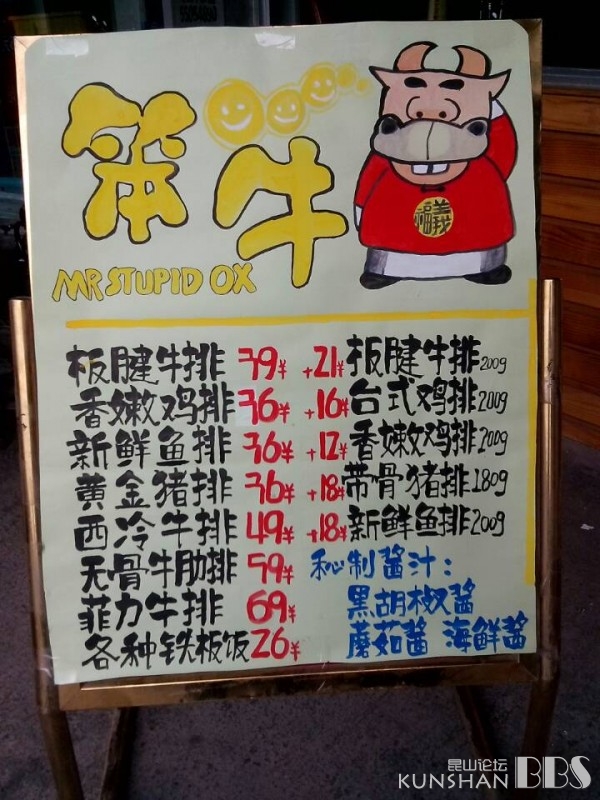 笨牛
MR STUPID OX
福義
板腱牛排 39¥ +21¥ 板腱牛排 200g
香嫩鸡排 36¥ +16¥ 台式鸡排 200g
新鲜鱼排 36¥ +12¥ 香嫩鸡排 200g
黄金猪排 36¥ +18¥ 带骨猪排 180g
西冷牛排 49¥ +18¥ 新鲜鱼排 200g
无骨牛肋排 59¥ 秘制酱汁:
菲力牛排 69¥ 黑胡椒酱
各种铁板饭 26¥ 蘑茹酱 海鲜酱
昆山论坛
KUNSHAN BBS